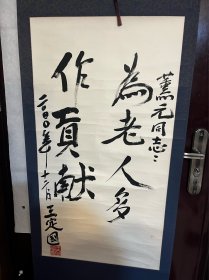 薰元同志:
為老人多
作貢献
二〇〇年十一月王定国